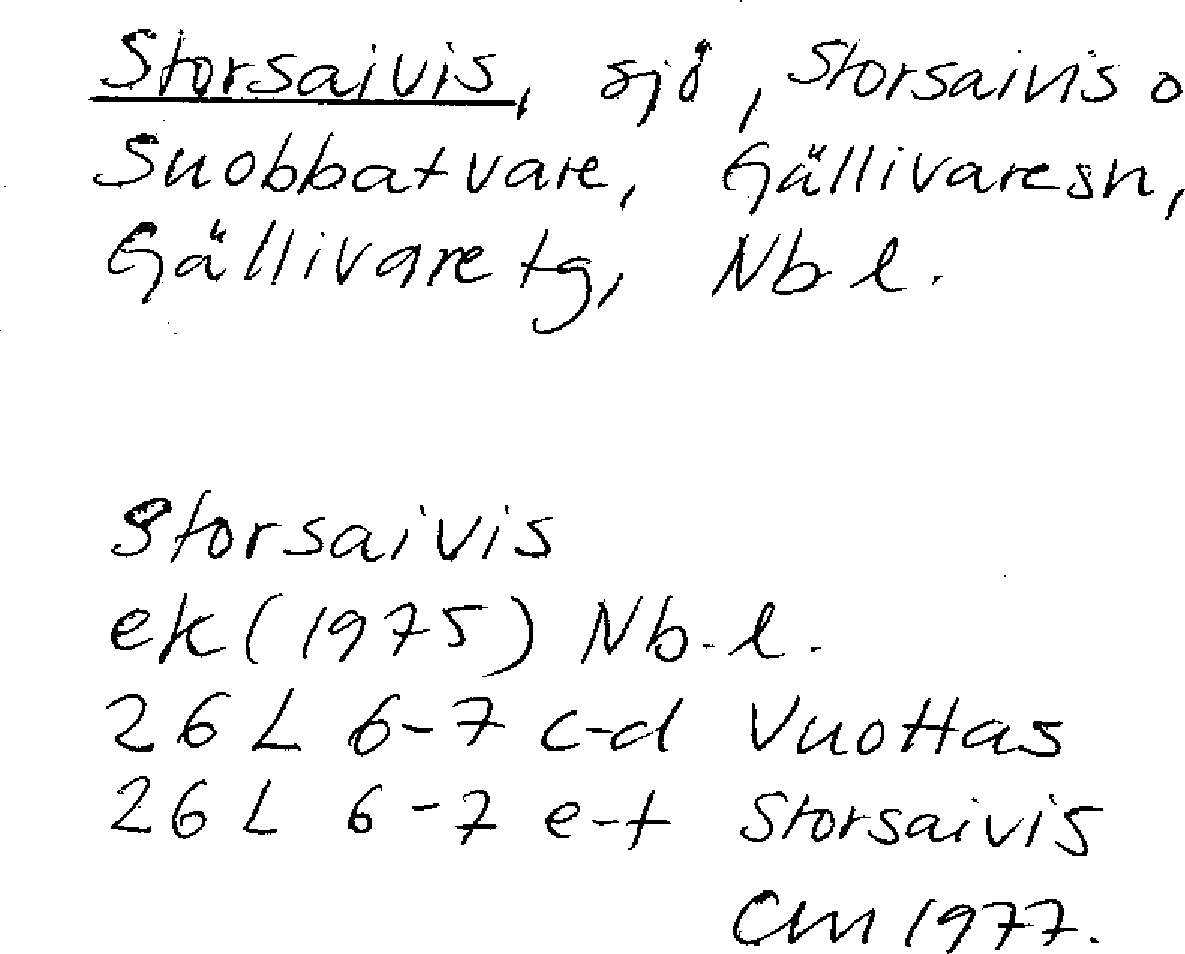 Storsaivis, sjö, Storsaivis o
Suobbatvare, Gällivare sn,
Gällivare tg, Nb l.
Storsaivis
ek (1975) Nb.l.
26 L 6-7 c-d Vuottas
26 L 6-7 e-f Storsaivis
CM 1977.